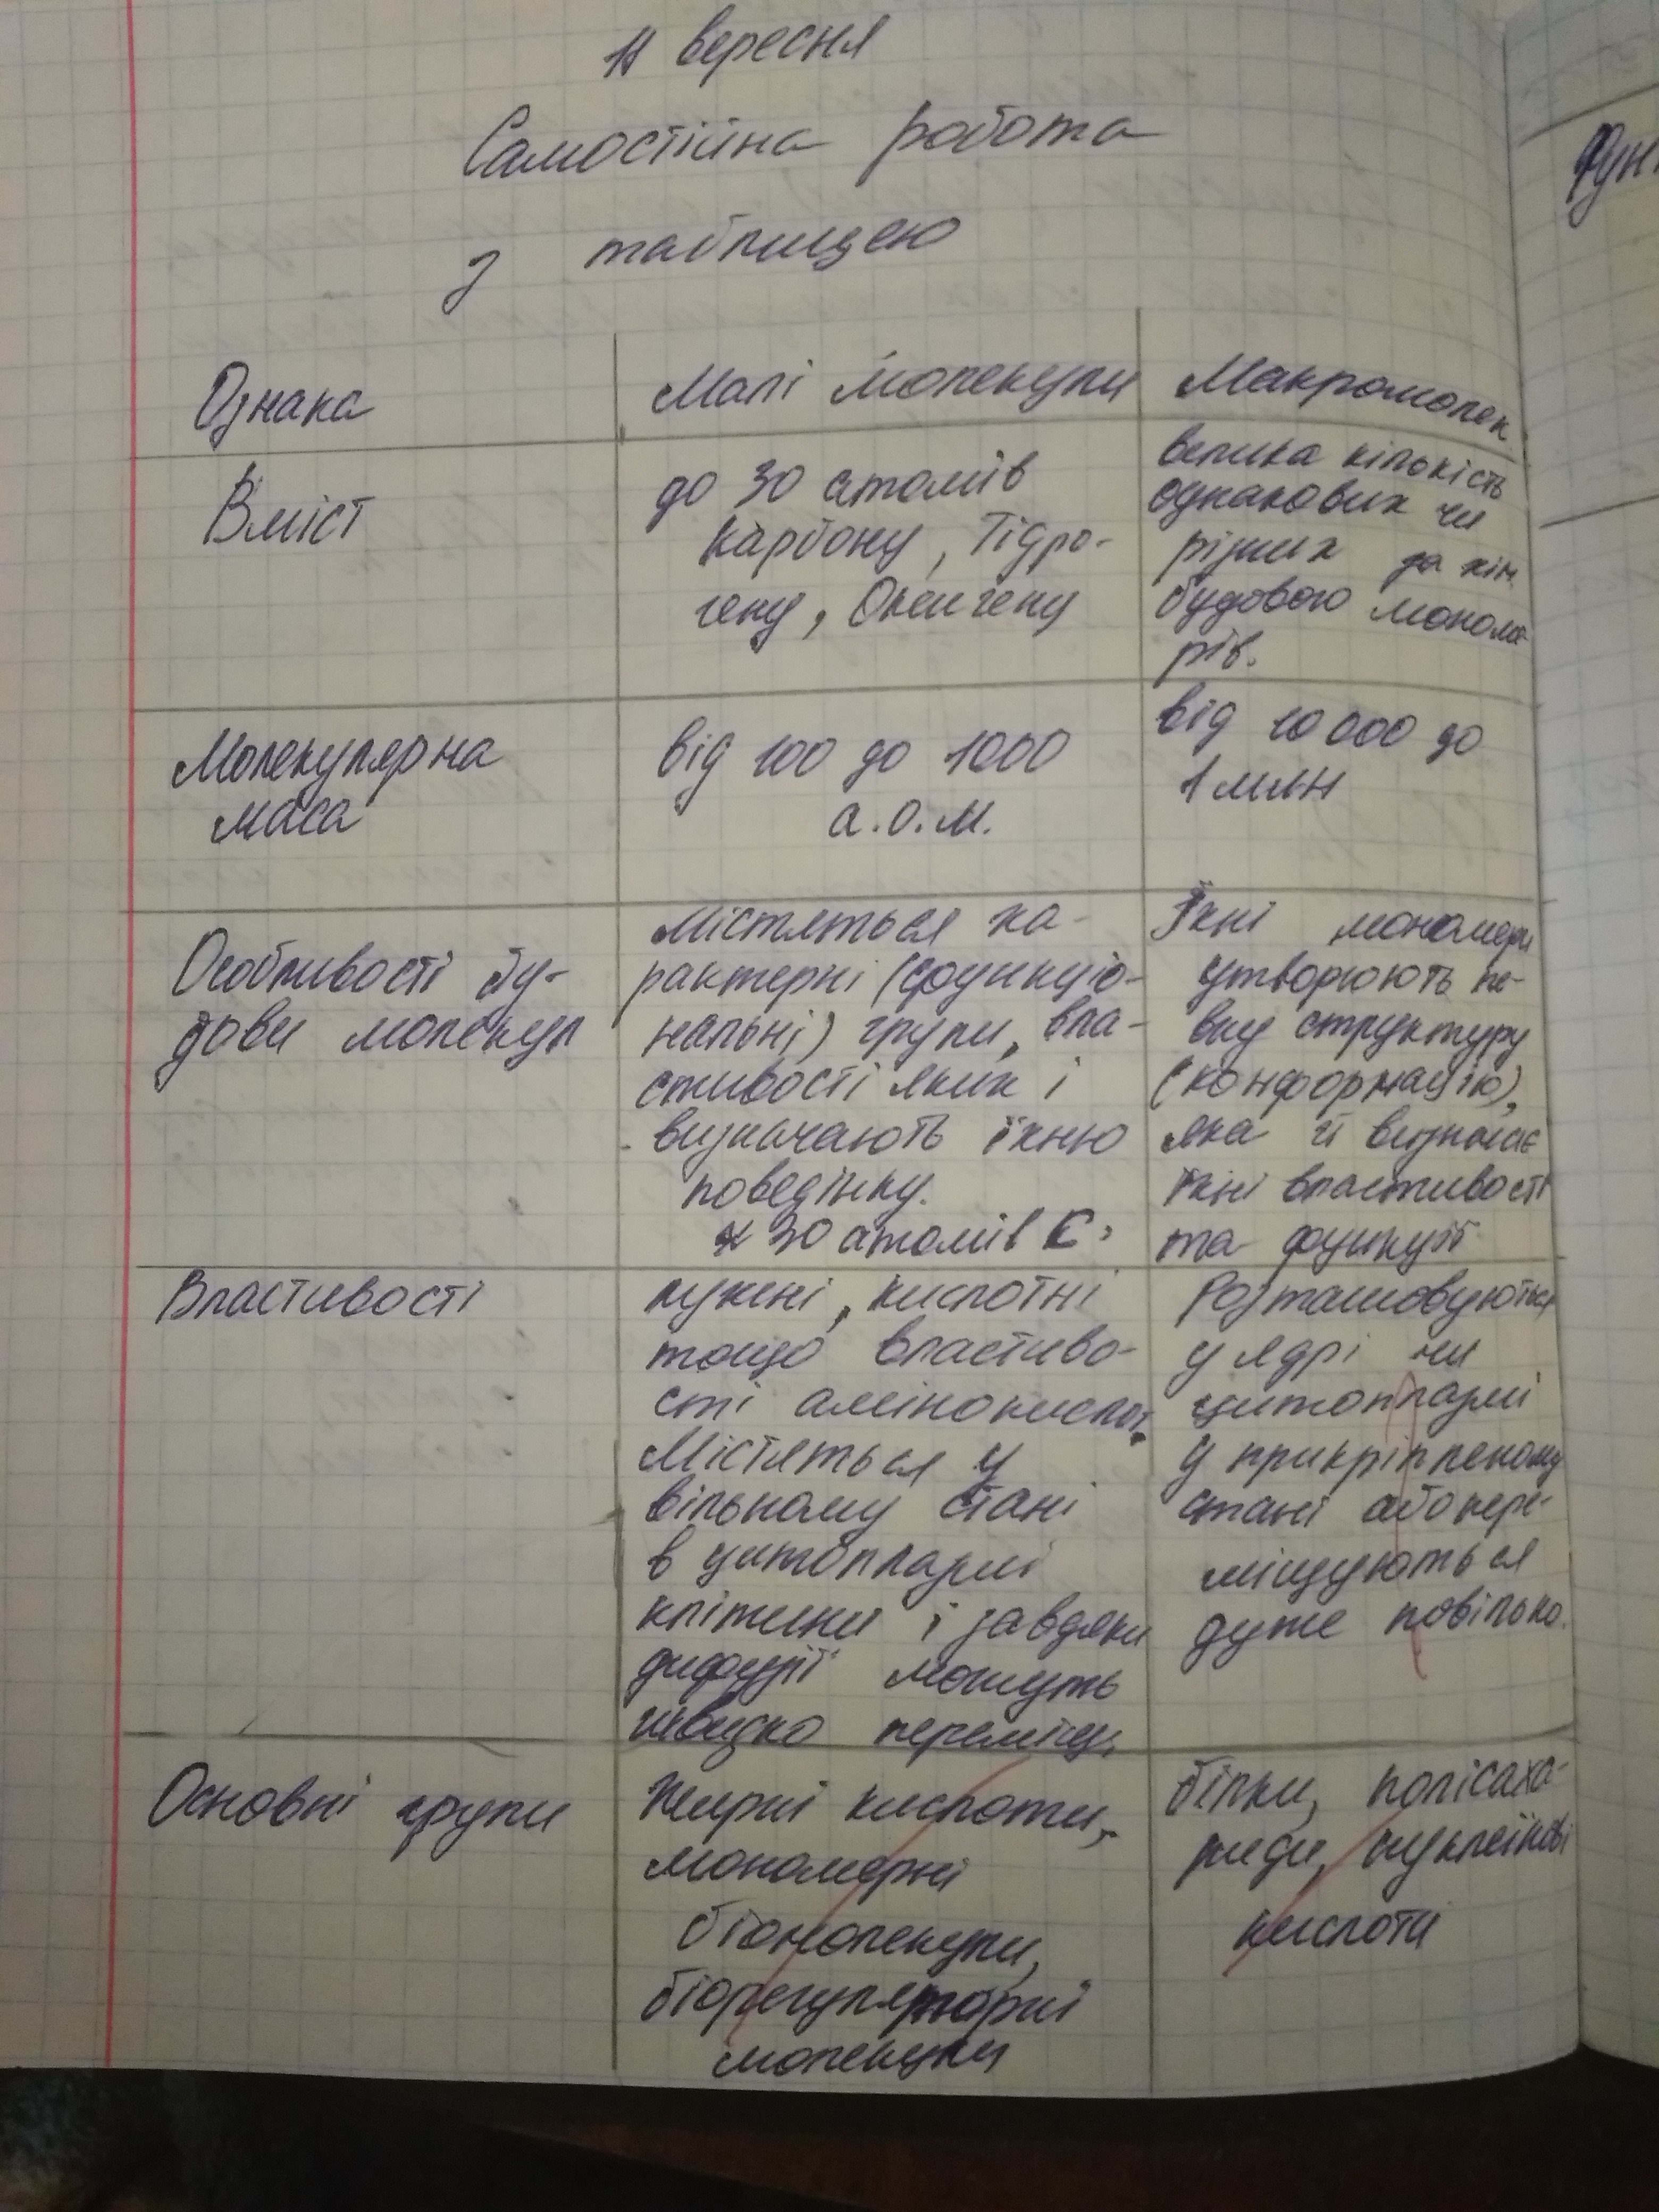 11 вересня
Самостійна робота
з таблицею
Ознака
Малі молекули
Макромолек
Вміст
до 30 атомів
Карбону, Гідро-
гену, Оксигену
велика кількість
однакових чи
різних за хім.
будовою мономе-
рів.
Молекулярна
маса
від 100 до 1000
а.о.м.
від 10 000 до
1 млн
Особливості бу-
дови молекул
Містяться ха-
рактерні (функціо-
нальні) групи, вла-
стивості яких і
визначають їхню
поведінку.
30 атомів С,
Їхні мономери
утворюють пе-
вну структуру
(конформацію),
яка й визначає
їхні властивості
та функції
Властивості
лужні, кислотні
тощо властиво-
сті амінокислот.
Містяться у
вільному стані
в цитоплазмі
клітини і завдяки
дифузії можуть
швидко переміщ.
Розташовуються
у ядрі чи
цитоплазмі
у прикріпленому
стані або пере-
міщуються
дуже повільно.
Основні групи
Жирні кислоти,
мономерні
біомолекули,
біорегуляторні
молекули
білки, полісаха-
риди, нуклеїнові
кислоти
Фун